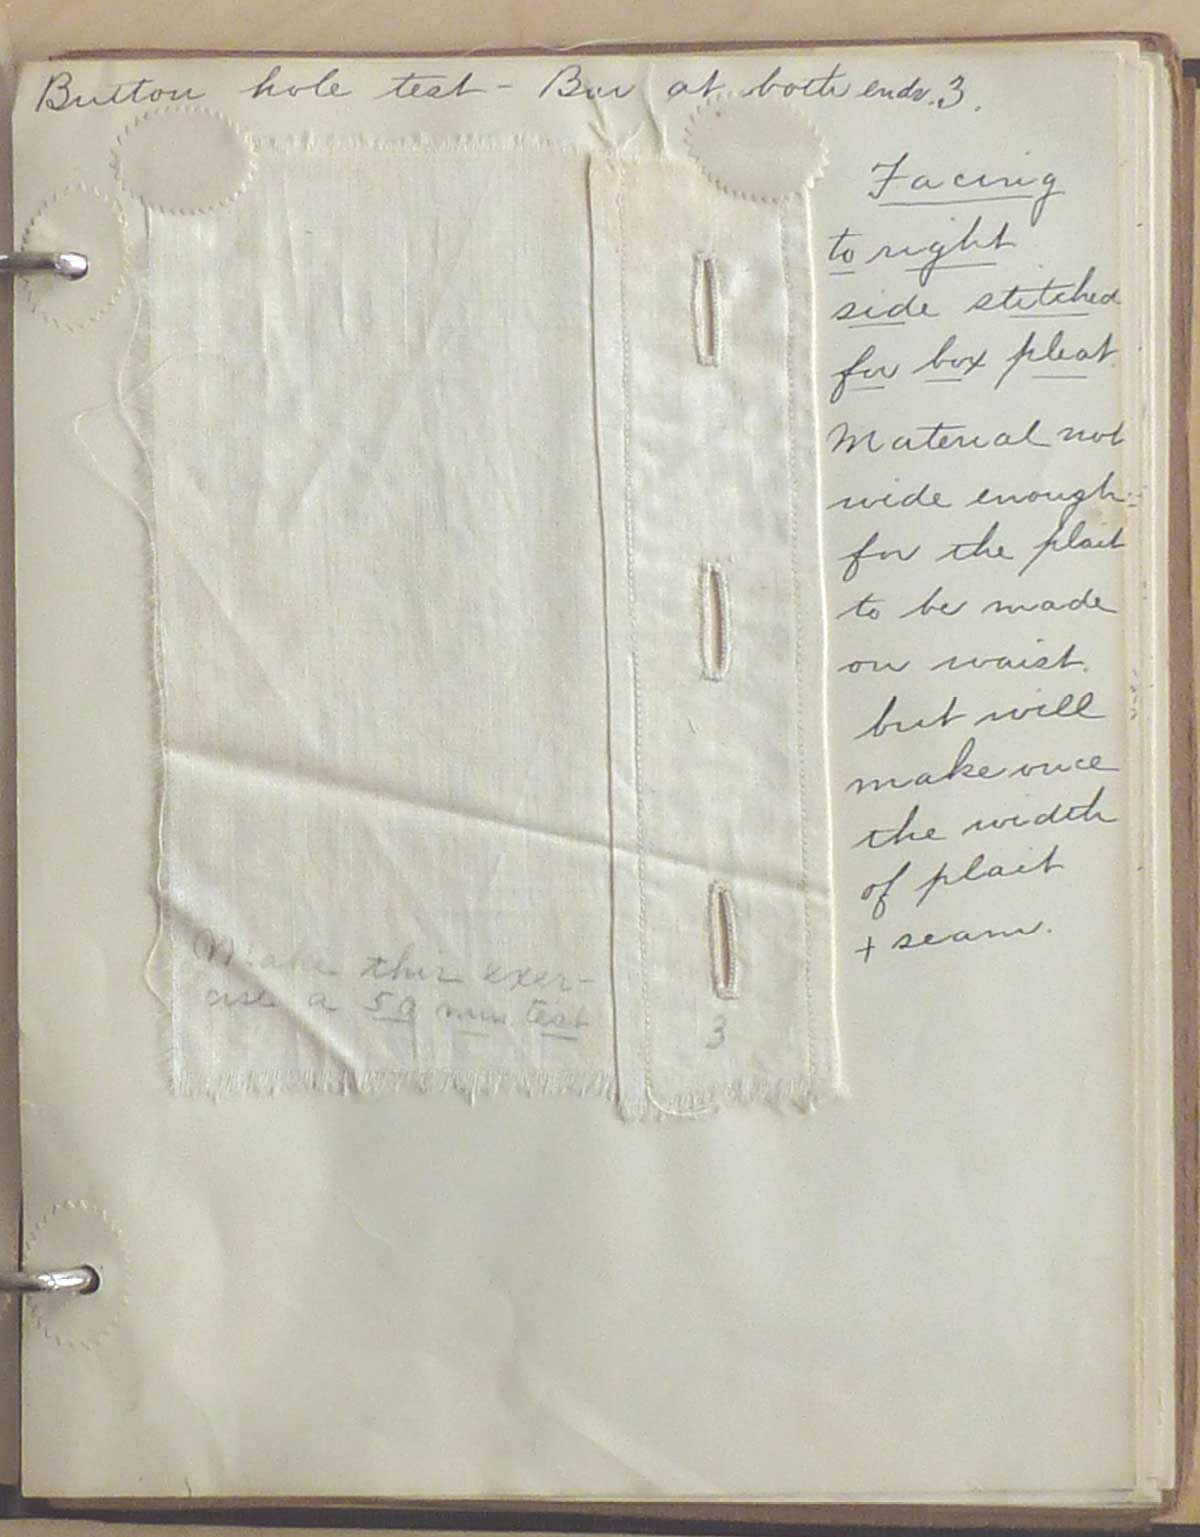 Button hole test - Bar at both ends. 3.
Facing
to right
side stitched
for box pleat.
Material not
wide enough
for the plait
to be made
on waist.
but will
make once
the width
of plait
+ seam.
Make this exer-
cise a 50 min test
3